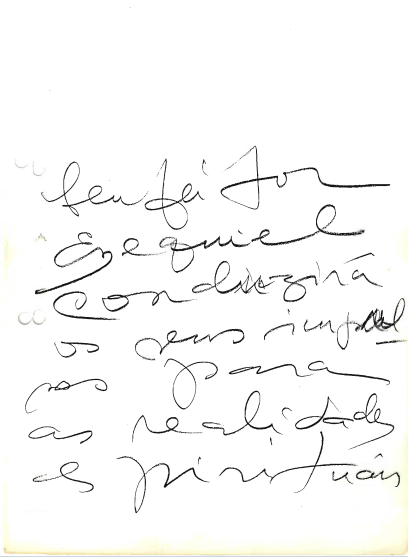 Benfeitor
Ezequiel
conduzirá
os seus impul
sos para
as realidades
espirituais